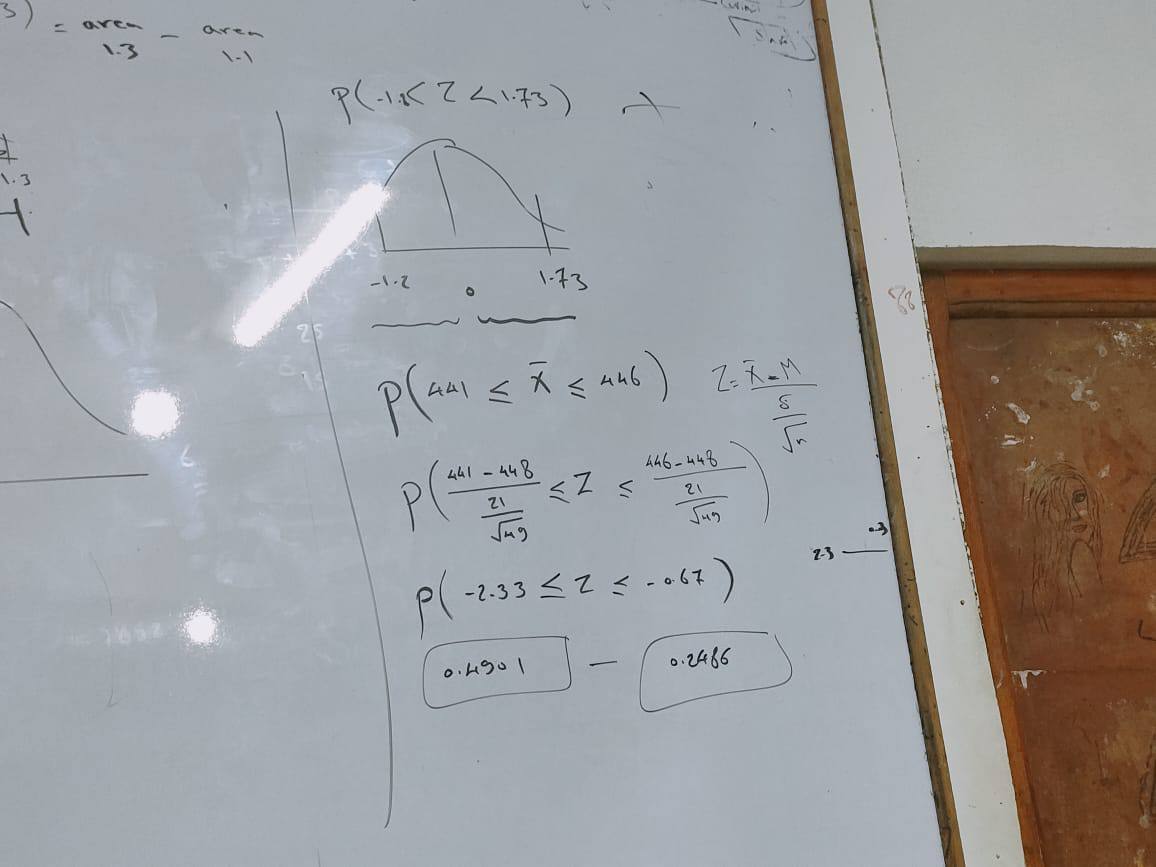 3) = area 1.3 - area 1.1
1.3
P(-1.2 < Z < 1.73)
-1.2 0 1.73
P(441 ≤ X̄ ≤ 446) Z = (X̄ - M) / (δ / √n)
P((441 - 448) / (21 / √49) ≤ Z ≤ (446 - 448) / (21 / √49))
2.3 0.3
P(-2.33 ≤ Z ≤ -0.67)
0.4901 - 0.2486